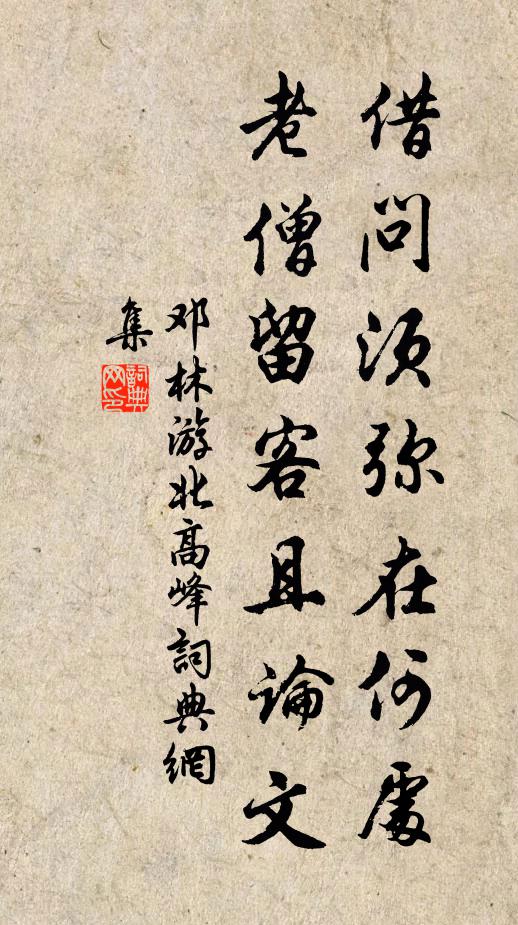 借问须弥在何處
老僧留客且論文
邓林游北高峰詞典網
集
詞典网印